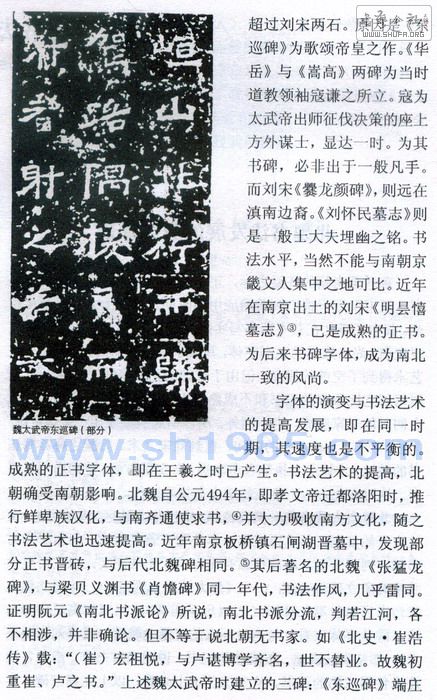 WWW.SHUFA.ORG
山北行而
駕路隅援弓而
者射之
魏太武帝东巡碑（部分）
超过刘宋两石。原因是《东
巡碑》为歌颂帝皇之作。《华
岳》与《嵩高》两碑为当时
道教领袖寇谦之所立。寇为
太武帝出师征伐决策的座上
方外谋士，显达一时。为其
书碑，必非出于一般凡手。
而刘宋《爨龙颜碑》，则远在
滇南边裔。《刘怀民墓志》则
是一般士大夫埋幽之铭。书
法水平，当然不能与南朝京
畿文人集中之地可比。近年
在南京出土的刘宋《明昙憘
墓志》③，已是成熟的正书。
为后来书碑字体，成为南北
一致的风尚。
字体的演变与书法艺术
的提高发展，即在同一时
期，其速度也是不平衡的。
www.sh1986.com
成熟的正书字体，即在王羲之时已产生。书法艺术的提高，北
朝确受南朝影响。北魏自公元494年，即孝文帝迁都洛阳时，推
行鲜卑族汉化，与南齐通使求书，④并大力吸收南方文化，随之
书法艺术也迅速提高。近年南京板桥镇石闸湖晋墓中，发现部
分正书晋砖，与后代北魏碑相同。⑤其后著名的北魏《张猛龙
碑》，与梁贝义渊书《肖憺碑》同一年代，书法作风，几乎雷同。
证明阮元《南北书派论》所说，南北书派分流，判若江河，各
不相涉，并非确论。但不等于说北朝无书家。如《北史·崔浩
传》载：“（崔）宏祖悦，与卢谌博学齐名，世不替业。故魏初
重崔、卢之书。”上述魏太武帝时建立的三碑：《东巡碑》端庄